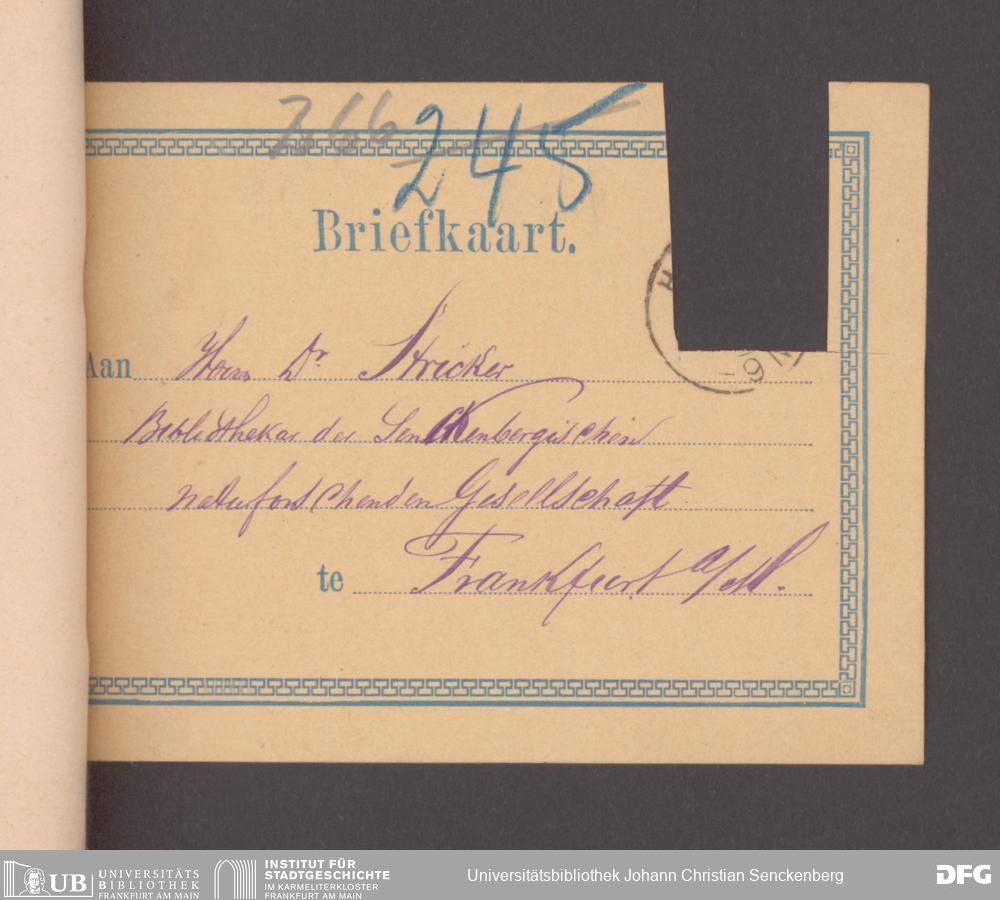 266
245
Briefkaart.
H
- 9 N
Aan Herrn Dr. Stricker
Bibliothekar der Senckenbergischen
naturforschenden Gesellschaft
te Frankfurt a/M.
UB UNIVERSITÄTS
BIBLIOTHEK
FRANKFURT AM MAIN
INSTITUT FÜR
STADTGESCHICHTE
IM KARMELITERKLOSTER
FRANKFURT AM MAIN
Universitätsbibliothek Johann Christian Senckenberg
DFG